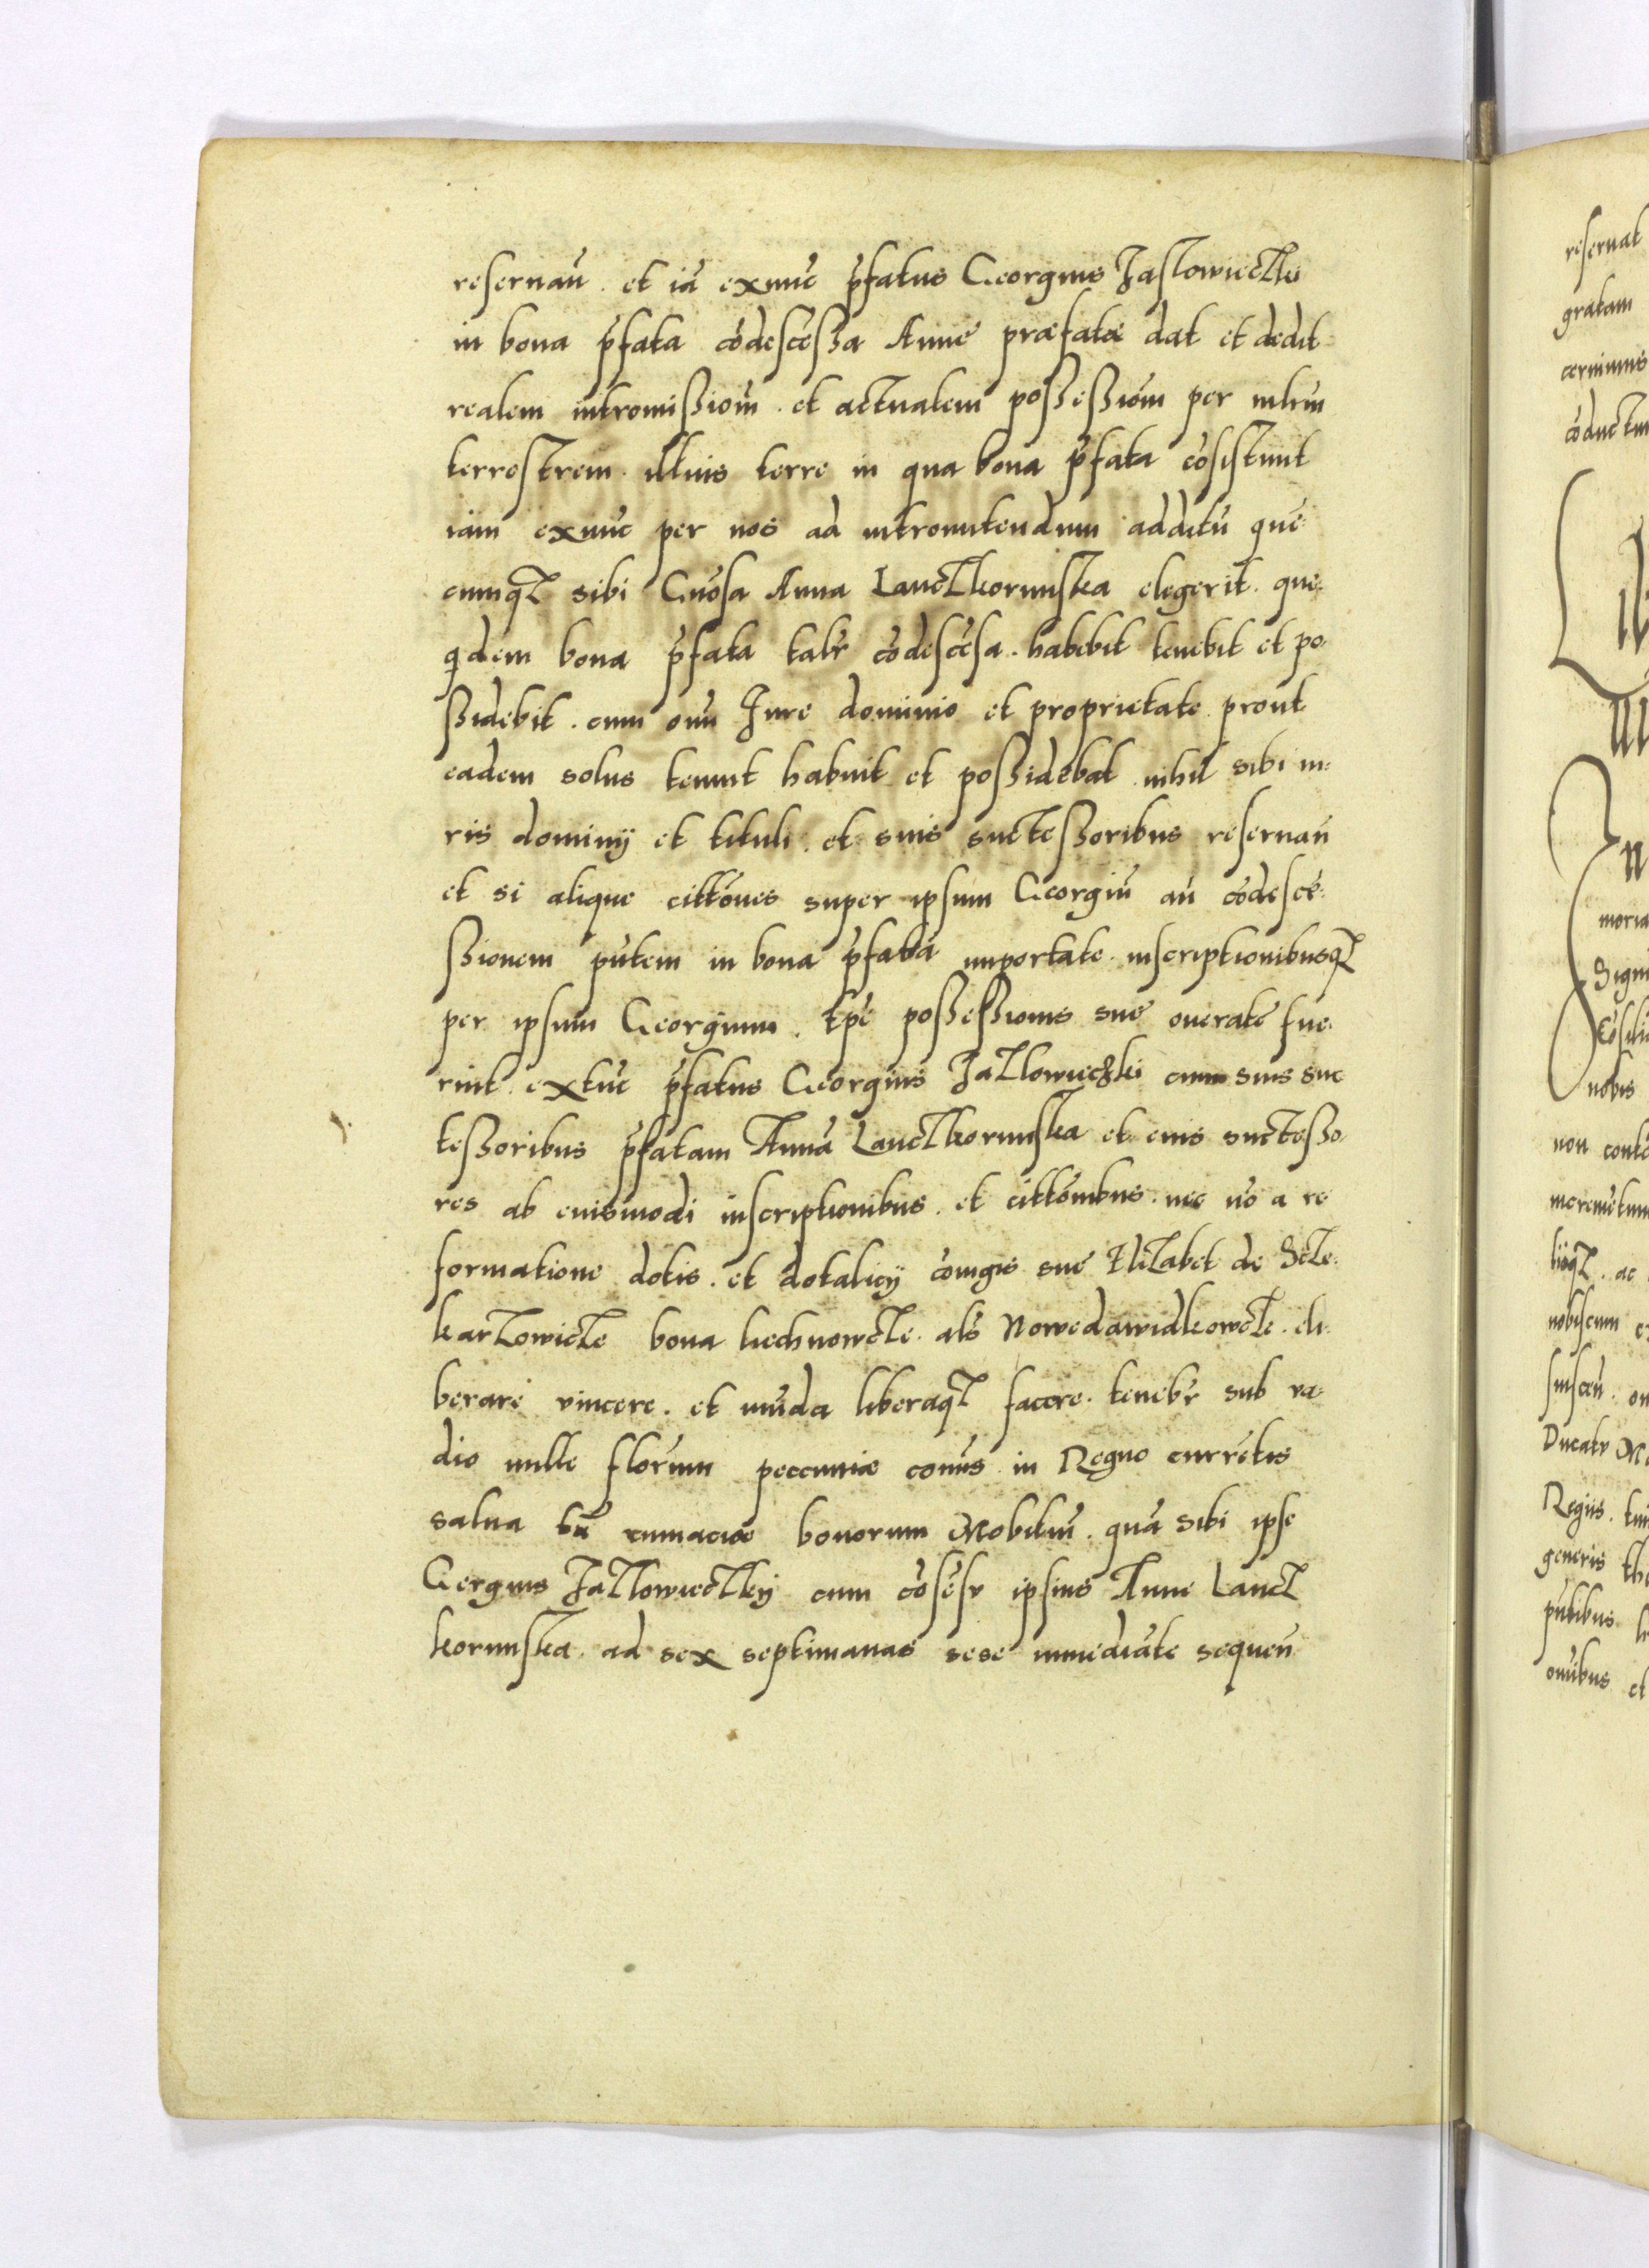 reseruan̄. et iā exnūc p̄fatus Georgius Jaslowieczki
in bona p̄fata cōdescēssa Anne præfatæ dat et dedit
realem intromissiōm. et actualem possessiōm per mh̄m
terrestrem. illius terre in qua bona p̄fata cōsistunt
iam exnūc per nos ad intromittendum additū que
cumqz sibi Gn̄osa Anna Lanczkorunska elegerit. que
qdem bona p̄fata talr̄ cōdescēsa. habebit tenebit et po
ssidebit. cum om̄i Jure dominio et proprietate prout
eadem solus tenuit habuit et possidebat nihil sibi iu:
ris dominij et tituli. et suis suctessoribus reseruan̄
et si alique cittōnes super ipsum Georgiū an̄ cōdescē:
ssionem pn̄tem in bona p̄fata importate. inscriptionibusqz
per ipsum Georgium. tp̄e possessionis sue onerate fue
rint. extūc p̄fatus Georgius Jazlowieczki cum suis suc
tessoribus p̄fatam Annā Lanczkorunska et eius suctesso
res ab euismodi inscriptionibus. et cittōnibus. nec nō a re
formatione dotis. et dotalicij cōiugis sue Elizabet de Scze
karzowicze bona liechnowcze. als Nowedawidkowcze. eli
berare vincere. et mūda liberaqz facere. tenebr̄ sub va
dio mille florēnm peccuniæ com̄is in Regno currētis
salua tn̄ eumacioē bonorum Mobiliū. quā sibi ipse
Gergius Jazlowieczkij cum cōsēsu ipsius Anne Lancz
korunska. ad sex septimanas sese immediate sequen̄